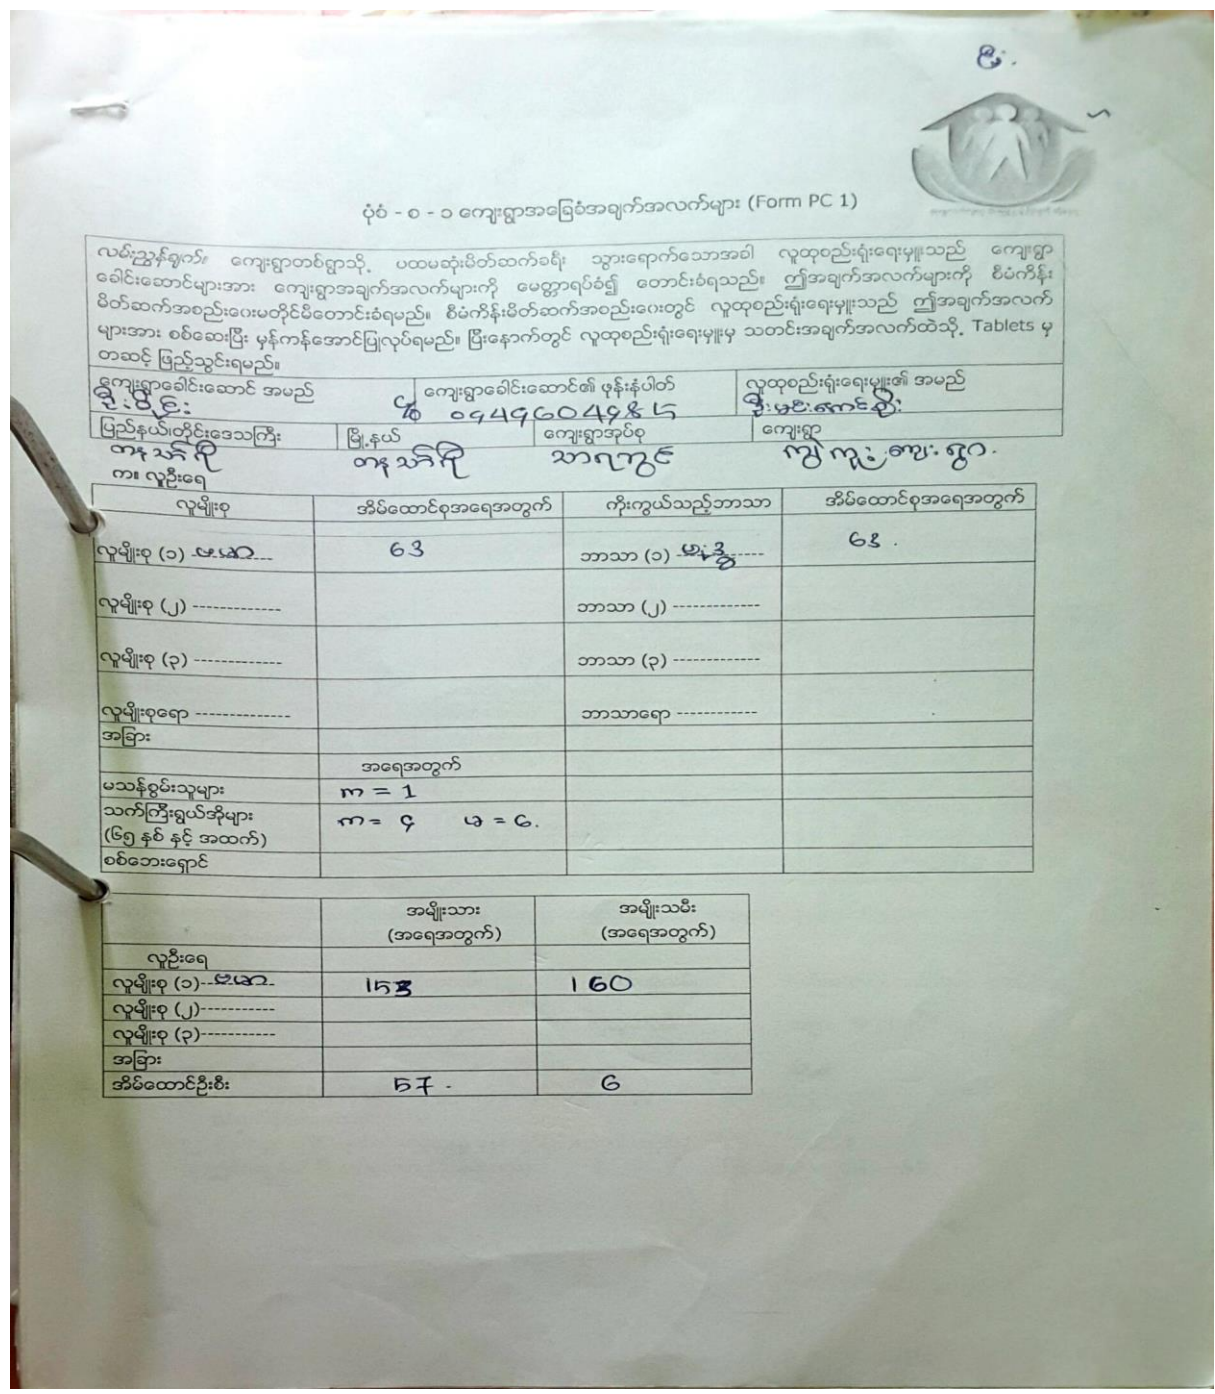 ပုံစံ - စ - ၁ ကျေးရွာအခြေခံအချက်အလက်များ (Form PC 1)
လမ်းညွှန်ချက်။ ကျေးရွာတစ်ရွာသို့ ပထမဆုံးမိတ်ဆက်ခရီး သွားရောက်သောအခါ လူထုစည်းရုံးရေးမှူးသည် ကျေးရွာ
ခေါင်းဆောင်များအား ကျေးရွာအချက်အလက်များကို မေတ္တာရပ်ခံ၍ တောင်းခံရသည်။ ဤအချက်အလက်များကို စီမံကိန်း
မိတ်ဆက်အစည်းဝေးမတိုင်မီတောင်းခံရမည်။ စီမံကိန်းမိတ်ဆက်အစည်းဝေးတွင် လူထုစည်းရုံးရေးမှူးသည် ဤအချက်အလက်
များအား စစ်ဆေးပြီး မှန်ကန်အောင်ပြုလုပ်ရမည်။ ပြီးနောက်တွင် လူထုစည်းရုံးရေးမှူးမှ သတင်းအချက်အလက်ထဲသို့ Tablets မှ
တဆင့် ဖြည့်သွင်းရမည်။
ကျေးရွာခေါင်းဆောင် အမည် ကျေးရွာခေါင်းဆောင်၏ ဖုန်းနံပါတ် လူထုစည်းရုံးရေးမှူး၏ အမည်
ပြည်နယ်၊တိုင်းဒေသကြီး မြို့နယ် ကျေးရွာအုပ်စု ကျေးရွာ
တနင်္သာရီ တနင်္သာရီ သာရဘွင်
က။ လူဦးရေ
လူမျိုးစု အိမ်ထောင်စုအရေအတွက် ကိုးကွယ်သည့်ဘာသာ အိမ်ထောင်စုအရေအတွက်
လူမျိုးစု (၁) ဗမာ 63 ဘာသာ (၁) ဗုဒ္ဓ 63
လူမျိုးစု (၂) ------------- ဘာသာ (၂) -------------
လူမျိုးစု (၃) ------------- ဘာသာ (၃) -------------
လူမျိုးစုရော -------------- ဘာသာရော ------------
အခြား
အရေအတွက်
မသန်စွမ်းသူများ က = 1
သက်ကြီးရွယ်အိုများ က = ၄ မ = 6.
(၆၅ နှစ် နှင့် အထက်)
စစ်ဘေးရှောင်
အမျိုးသား အမျိုးသမီး
(အရေအတွက်) (အရေအတွက်)
လူဦးရေ
လူမျိုးစု (၁) ဗမာ 153 160
လူမျိုးစု (၂)-----------
လူမျိုးစု (၃)-----------
အခြား
အိမ်ထောင်ဦးစီး 57 6